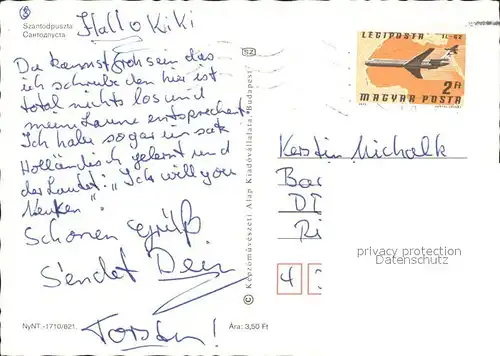 Szantodpuszta
Сантодпуста
Hallo Kiki
Du kannst froh sein das
ich schreibe den hier ist
total nichts los und
meine Laune entsprechent
Ich habe sogar ein satz
Holländisch gelernt und
der lautet: "Ich will you
Neuken"
Schönen Grüß
Sendet Dein
Torsten!
NyNT.-1710/821.
Ára: 3,50 Ft
© Képzőművészeti Alap Kiadóvállalata · Budapest
SZ
LEGIPOSTA IL-62
2 Ft
MAGYAR POSTA
Kerstin Michalk
Bar
DT
Ri
privacy protection
Datenschutz
4